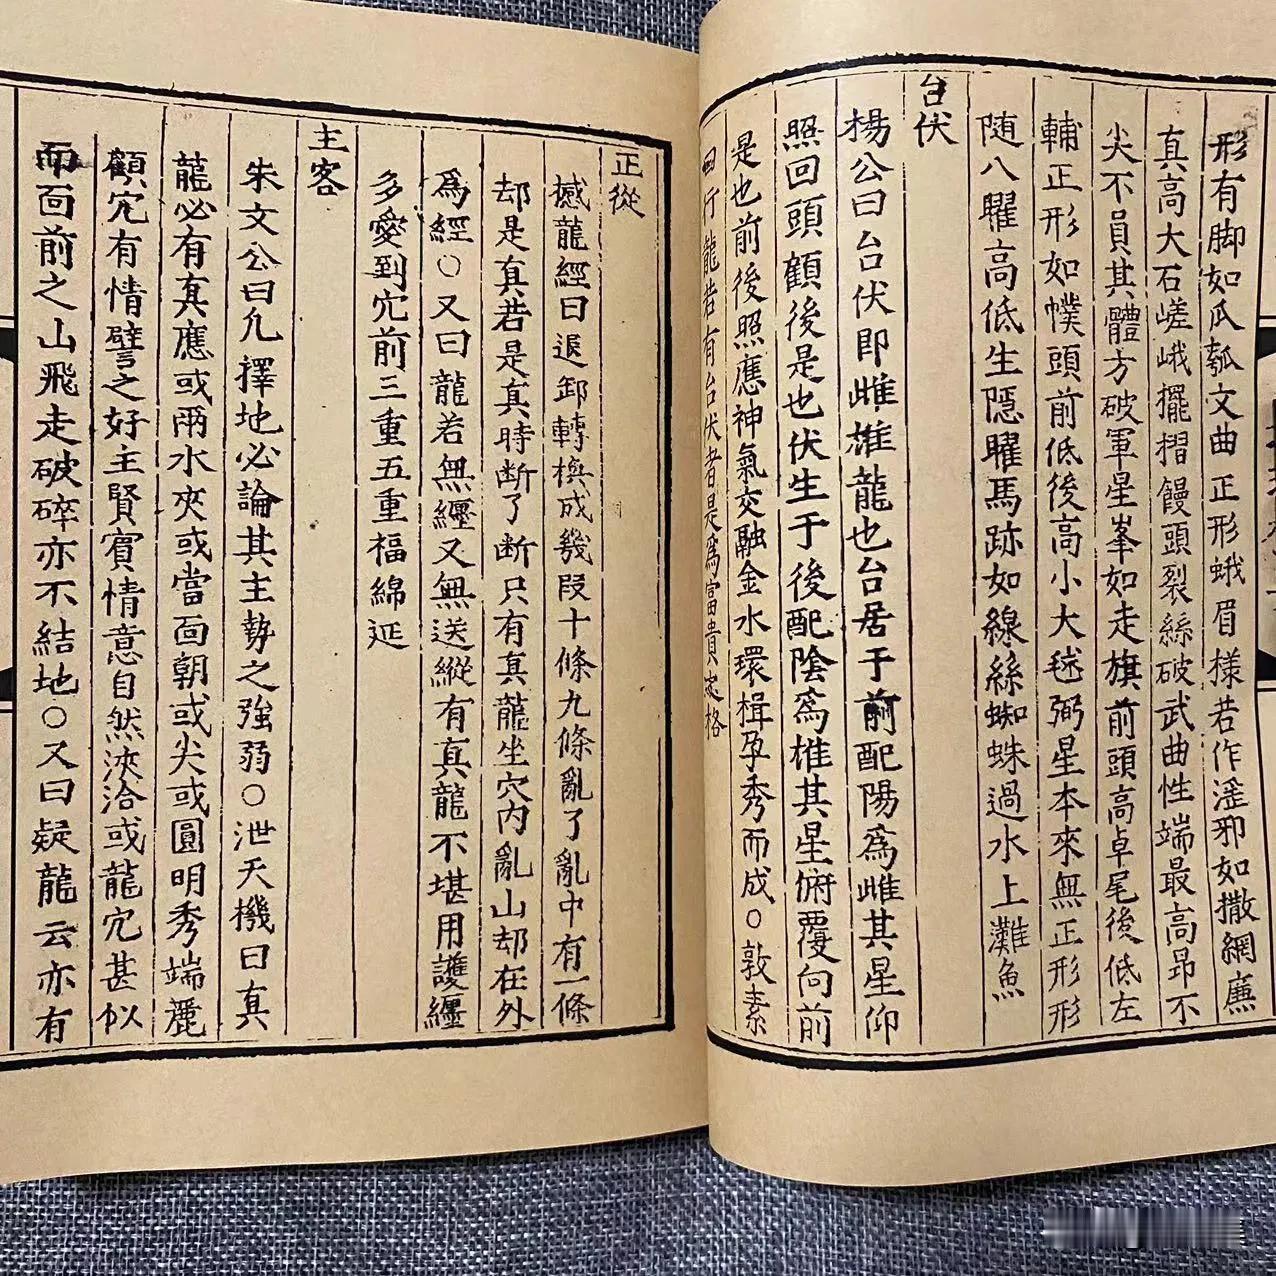 形有脚如瓜瓠文曲正形蛾眉樣若作淫邪如撒網廉
真高大石嵯峨擺摺饅頭裂絲破武曲性端最高昂不
尖不員其體方破軍星峯如走旗前頭高卓尾後低左
輔正形如幞頭前低後高小大毬弼星本來無正形形
随八曜高低生隱曜馬跡如線絲蜘蛛過水上灘魚
台伏
楊公曰台伏即雌雄龍也台居于前配陽爲雌其星仰
照回頭顧後是也伏生于後配陰爲雄其星俯覆向前
是也前後照應神氣交融金水環楫孕秀而成○敦素
曰行龍若有台伏者是爲富貴定格
正從
撼龍經曰退卸轉換成幾段十條九條亂了亂中有一條
却是真若是真時断了断只有真龍坐穴内亂山却在外
爲經○又曰龍若無纒又無送縱有真龍不堪用護纒
多愛到穴前三重五重福綿延
主客
朱文公曰凡擇地必論其主勢之強弱○泄天機曰真
龍必有真應或兩水夾或當面朝或尖或圓明秀端麗
顧穴有情譬之好主賢賓情意自然浹洽或龍穴甚似
而面前之山飛走破碎亦不結地○又曰疑龍云亦有